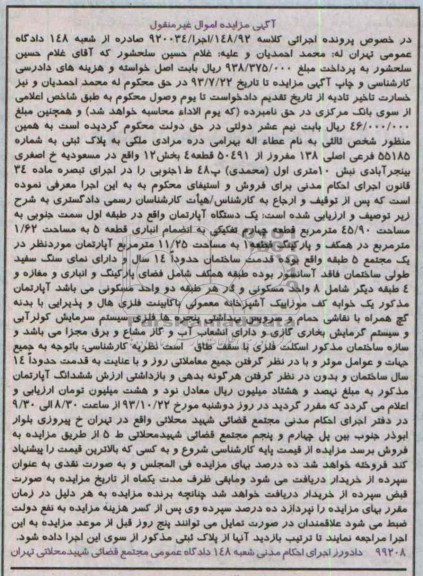 آگهی مزایده اموال غیرمنقول
در خصوص پرونده اجرائی کلاسه ۱۴۸/۹۲/اجرا/۹۲۰۰۳۴ صادره از شعبه ۱۴۸ دادگاه
عمومی تهران له: محمد احمدیان و علیه: غلام حسین سلحشور که آقای غلام حسین
سلحشور به پرداخت مبلغ ۹۳۸/۳۷۵/۰۰۰ ریال بابت اصل خواسته و هزینه های دادرسی
کارشناسی و چاپ آگهی مزایده تا تاریخ ۹۳/۷/۲۲ در حق محکوم له محمد احمدیان و نیز
خسارت تاخیر تادیه از تاریخ تقدیم دادخواست تا یوم وصول محکوم به طبق شاخص اعلامی
از سوی بانک مرکزی در حق نامبرده (که یوم الاداء محاسبه خواهد شد) و همچنین مبلغ
۴۶/۰۰۰/۰۰۰ ریال بابت نیم عشر دولتی در حق دولت محکوم گردیده است به همین
منظور شخص ثالثی به نام عطاء اله بهرامی دره مرادی ملکی به پلاک ثبتی به شماره
۵۵۱۸۵ فرعی اصلی ۱۳۸ مفروز از ۵۰۴۹۱ قطعه۴ بخش۱۲ واقع در مسعودیه خ اصغری
بینجرآبادی نبش ۱۰متری اول (محمدی) پ۴۸ ط۱جنوبی را در اجرای تبصره ماده ۳۴
قانون اجرای احکام مدنی برای فروش و استیفای محکوم به به این اجرا معرفی نموده
است که پس از توقیف و ارجاع به کارشناس/هیات کارشناسان رسمی دادگستری به شرح
زیر توصیف و ارزیابی شده است: یک دستگاه آپارتمان واقع در طبقه اول سمت جنوبی به
مساحت ۴۵/۹۰ مترمربع قطعه چهارم تفکیکی به انضمام انباری قطعه ۵ به مساحت ۱/۶۲
مترمربع در همکف و پارکینگ قطعه۱ به مساحت ۱۱/۲۵ مترمربع آپارتمان موردنظر در
یک مجتمع ۵ طبقه واقع بوده قدمت ساختمان حدوداً ۱۴ سال و دارای نمای سنگ سفید
طولی ساختمان فاقد آسانسور بوده طبقه همکف شامل فضای پارکینگ و انباری و مغازه و
۴ طبقه دیگر شامل ۸ واحد مسکونی و در هر طبقه دو واحد مسکونی می باشد آپارتمان
مذکور یک خوابه کف موزاییک آشپزخانه معمولی باکابینت فلزی هال و پذیرایی با بدنه
گچ همراه با نقاشی حمام و سرویس بهداشتی پنجره ها فلزی سیستم سرمایش کولرآبی
و سیستم گرمایش بخاری گازی و دارای انشعاب آب و گاز مشاع و برق مجزا می باشد و
سازه ساختمان مذکور اسکلت فلزی با سقف طاق است نظریه کارشناسی: باتوجه به جمیع
جهات و عوامل موثر و با در نظر گرفتن جمیع معاملاتی روز و با عنایت به قدمت حدوداً ۱۴
سال ساختمان و بدون در نظر گرفتن هرگونه بدهی و بازداشتی ارزش ششدانگ آپارتمان
مذکور به مبلغ نهصد و هشتاد میلیون ریال معادل نود و هشت میلیون تومان ارزیابی و
اعلام می گردد که مقرر گردید در روز دوشنبه مورخ ۹۳/۱۰/۲۲ از ساعت ۸/۳۰ الی ۹/۳۰
در دفتر اجرای احکام مدنی مجتمع قضائی شهید محلاتی واقع در تهران خ پیروزی بلوار
ابوذر جنوب بین پل چهارم و پنجم مجتمع قضائی شهیدمحلاتی ط ۵ از طریق مزایده به
فروش برسد مزایده از قیمت پایه کارشناسی شروع و به کسی که بالاترین قیمت را پیشنهاد
کند فروخته خواهد شد ده درصد بهای مزایده فی المجلس و به صورت نقدی به عنوان
سپرده از خریدار دریافت می شود ومابقی ظرف مدت یکماه از تاریخ مزایده به صورت
قبض سپرده از خریدار دریافت خواهد شد چنانچه برنده مزایده به هر دلیل در زمان
مقرر بهای مزایده را نپردازد ده درصد سپرده وی پس از کسر هزینه مزایده به نفع دولت
ضبط می شود علاقمندان در صورت تمایل می توانند پنج روز قبل از موعد مزایده به این
اجرا مراجعه نمایند تا ترتیب بازدید آنها از پلاک ثبتی مذکور از سوی این اجرا داده شود.
۹۹۲۰۸ دادورز اجرای احکام مدنی شعبه ۱۴۸ دادگاه عمومی مجتمع قضائی شهیدمحلاتی تهران